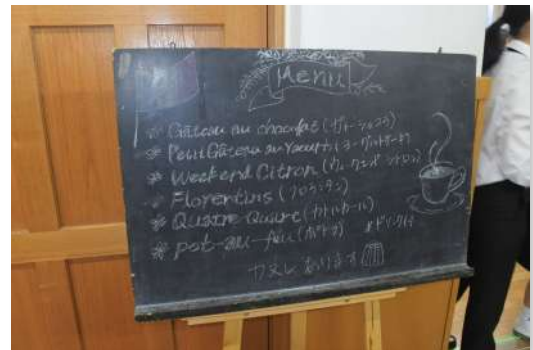 Menu
Gâteau au chocolat (ガトーショコラ)
Petit Gâteau au Yaourt (ヨーグルトケーキ)
Weekend Citron (ウィークエンド シトロン)
Florentins (フロランタン)
Quatre Quarts (カトルカール)
pot-au-feu (ポトフ)
カヌレ あります